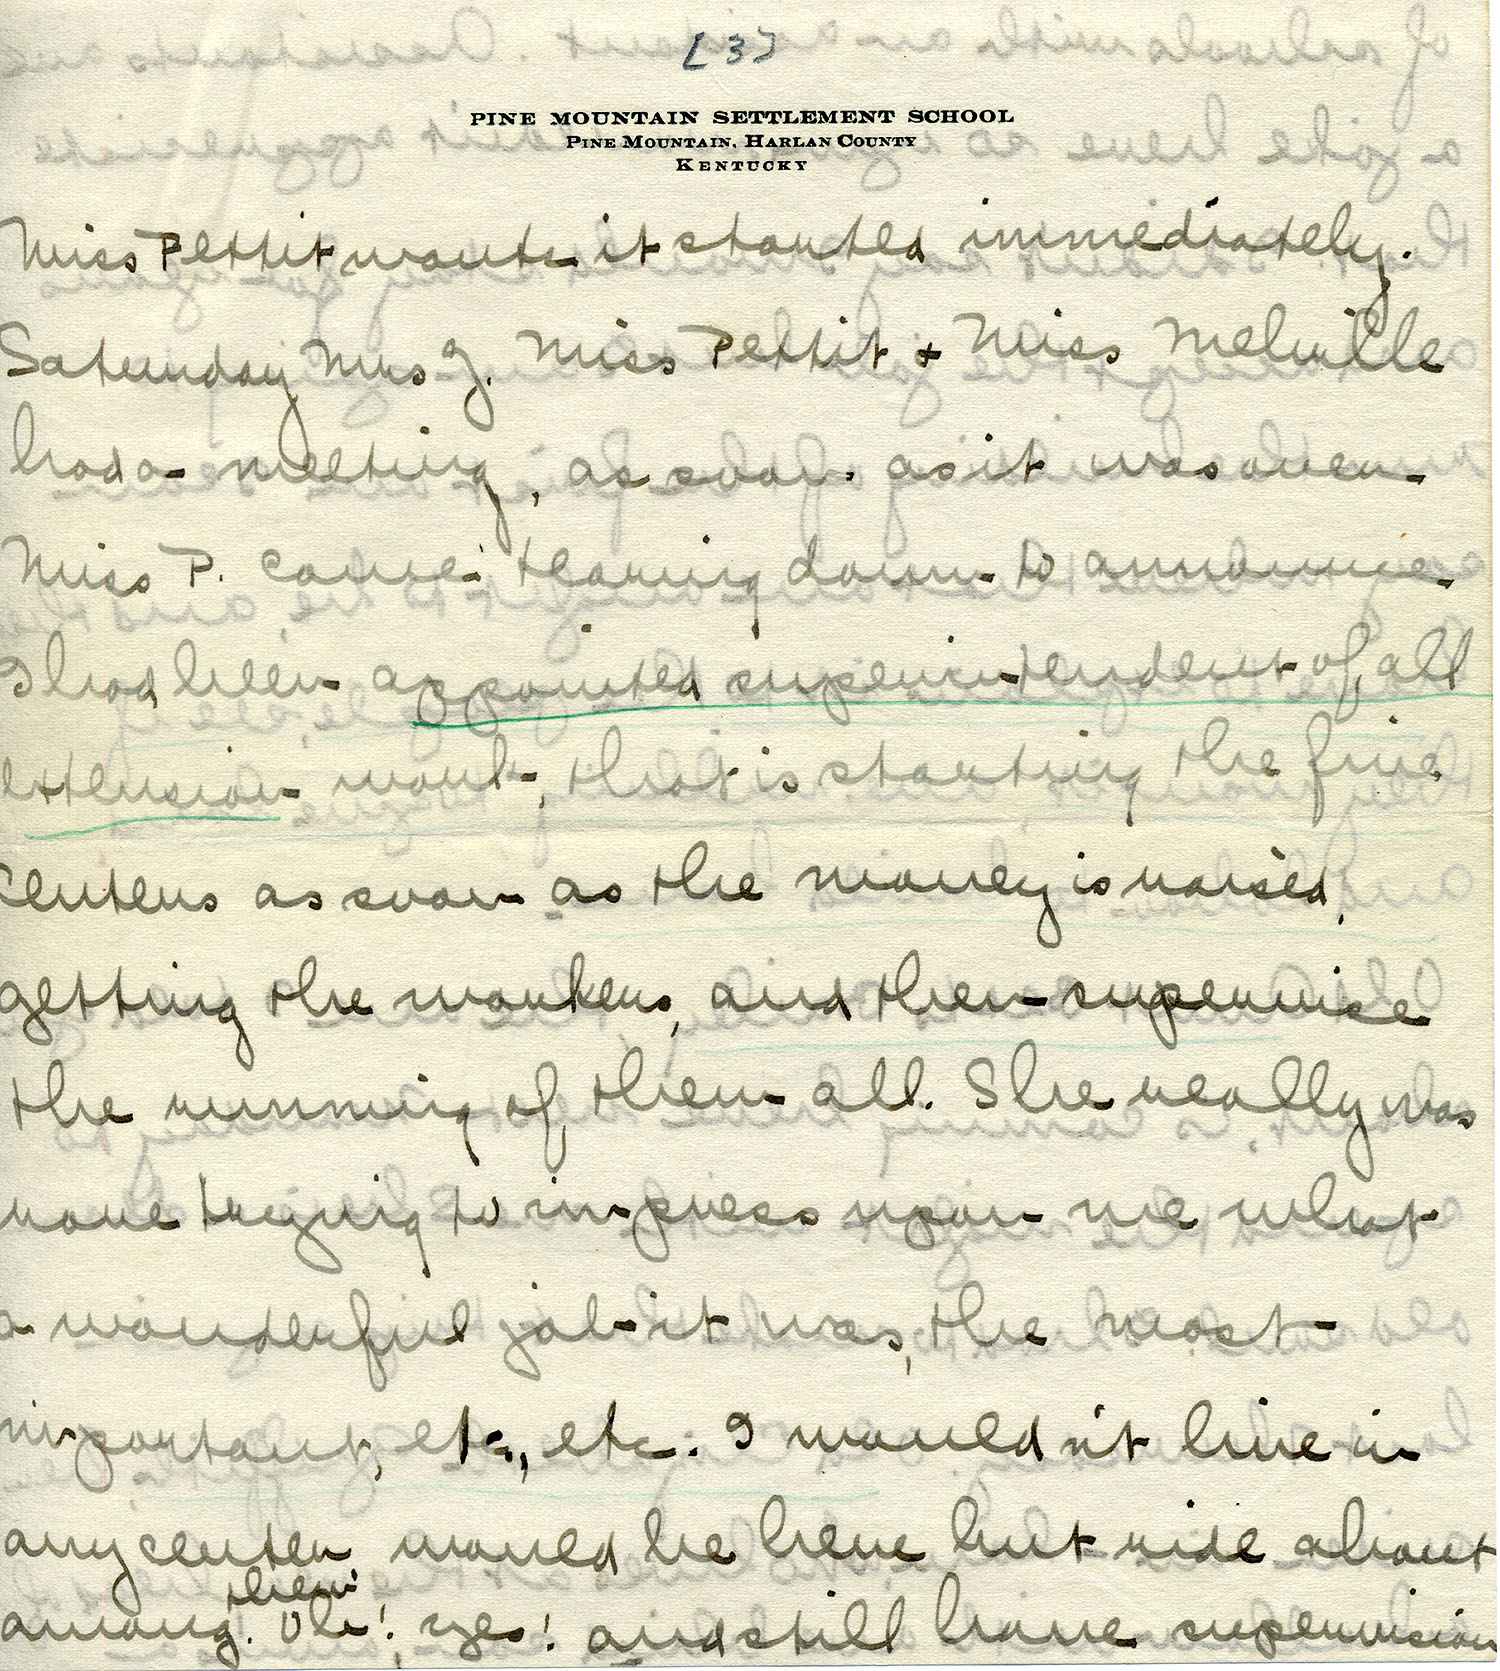 [3]
PINE MOUNTAIN SETTLEMENT SCHOOL
PINE MOUNTAIN, HARLAN COUNTY
KENTUCKY
Miss Pettit wants it started immediately.
Saturday Mrs Z. Miss Pettit + Miss Melville
had a meeting, as soon as it was over
Miss P. came tearing down to announce
I had been appointed superintendent of all
extension work, that is starting the five
centers as soon as the money is raised,
getting the workers, and then supervise
the running of them all. She really was
rare trying to impress upon me what
a wonderful job it was, the most
important, etc., etc. I wouldn't live in
any center would be here but ride about
among them. Oh! yes! and still have supervision